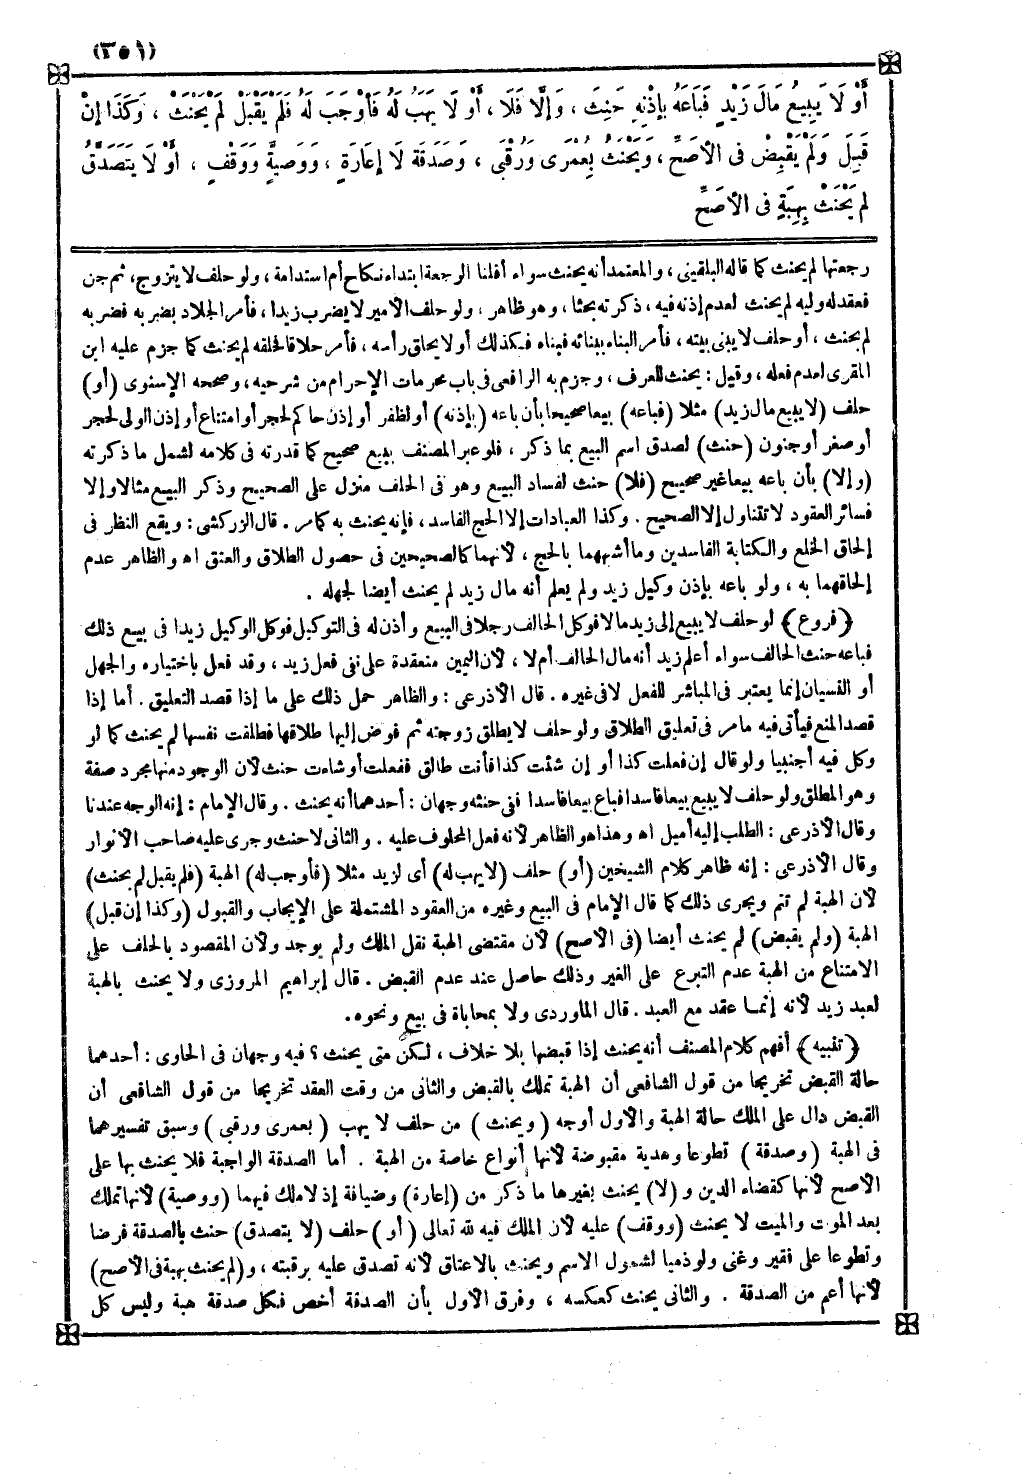 (٣٥١)
أَوْ لَا يَبِيعُ مَالَ زَيْدٍ فَبَاعَهُ بِإِذْنِهِ حَنِثَ ، وَإِلَّا فَلَا ، أَوْ لَا يَهَبُ لَهُ فَأَوْجَبَ لَهُ فَلَمْ يَقْبَلْ لَمْ يَحْنَثْ ، وَكَذَا إِنْ
قَبِلَ وَلَمْ يَقْبِضْ فى الْأَصَحِّ ، وَيَحْنَثُ بِعُمْرَى وَرُقْبَى ، وَصَدَقَةٍ لَا إِعَارَةٍ ، وَوَصِيَّةٍ وَوَقْفٍ ، أَوْ لَا يَتَصَدَّقُ
لَمْ يَحْنَثْ بِهِبَةٍ فى الْأَصَحِّ
رجعتها لم يحنث كما قاله البلقينى ، والمعتمد أنه يحنث سواء أقلنا الرجعة ابتداء نكاح أم استدامة ، ولو حلف لا يتزوج، ثم جن
فعقد له وليه لم يحنث لعدم إذنه فيه ، ذكرته بحثا ، وهو ظاهر ، ولو حلف الأمير لا يضرب زيدا ، فأمر الجلاد بضربه فضربه
لم يحنث ، أو حلف لا يبنى بيته ، فأمر البناء ببنائه فبناه فكذلك أو لا يحلق رأسه ، فأمر حلاقا فحلقه لم يحنث كما جزم عليه ابن
المقرى لعدم فعله ، وقيل : يحنث للعرف ، وجزم به الرافعى فى باب محرمات الإحرام من شرحيه ، وصححه الإسنوى (أو)
حلف (لا يبيع مال زيد) مثلا (فباعه) بيعا صحيحا بأن باعه (بإذنه) أو لظفر أو إذن حاكم لحجر أو امتناع أو إذن الولى لحجر
أو صغر أو جنون (حنث) لصدق اسم البيع بما ذكر ، فلو عبر المصنف ببيع صحيح كما قدرته فى كلامه لشمل ما ذكرته
(وإلا) بأن باعه بيعا غير صحيح (فلا) حنث لفساد البيع وهو فى الحلف منزل على الصحيح وذكر البيع مثال وإلا
فسائر العقود لا تتناول إلا الصحيح . وكذا العبادات إلا الحج الفاسد ، فإنه يحنث به كما مر . قال الزركشى : ويقع النظر فى
إلحاق الخلع والكتابة الفاسدين وما أشبههما بالحج ، لأنهما كالصحيحين فى حصول الطلاق والعتق اه والظاهر عدم
إلحاقهما به ، ولو باعه بإذن وكيل زيد ولم يعلم أنه مال زيد لم يحنث أيضا لجهله .
﴿فروع﴾ لو حلف لا يبيع إلى زيد مالا فوكل الحالف رجلا فى البيع وأذن له فى التوكيل فوكل الوكيل زيدا فى بيع ذلك
فباعه حنث الحالف سواء أعلم زيد أنه مال الحالف أم لا ، لأن اليمين منعقدة على نفى فعل زيد ، وقد فعل باختياره والجهل
أو النسيان إنما يعتبر فى المباشر للفعل لا فى غيره . قال الأذرعى : والظاهر حمل ذلك على ما إذا قصد التعليق . أما إذا
قصد المنع فيأتى فيه ما مر فى تعليق الطلاق ولو حلف لا يطلق زوجته ثم فوض إليها طلاقها فطلقت نفسها لم يحنث كما لو
وكل فيه أجنبيا ولو قال إن فعلت كذا أو إن شئت كذا فأنت طالق ففعلت أو شاءت حنث لأن الوجود منها مجرد صفة
وهو المطلق ولو حلف لا يبيع بيعا فاسدا فباع بيعا فاسدا ففى حنثه وجهان : أحدهما أنه يحنث . وقال الإمام : إنه الوجه عندنا
وقال الأذرعى : الطلب إليه أميل اه وهذا هو الظاهر لأنه فعل المحلوف عليه . والثانى لا حنث وجرى عليه صاحب الأنوار
وقال الأذرعى : إنه ظاهر كلام الشيخين (أو) حلف (لا يهب له) أى لزيد مثلا (فأوجب له) الهبة (فلم يقبل لم يحنث)
لأن الهبة لم تتم ويجرى ذلك كما قال الإمام فى البيع وغيره من العقود المشتملة على الإيجاب والقبول (وكذا إن قبل)
الهبة (ولم يقبض) لم يحنث أيضا (فى الأصح) لأن مقتضى الهبة نقل الملك ولم يوجد ولأن المقصود بالحلف على
الامتناع من الهبة عدم التبرع على الغير وذلك حاصل عند عدم القبض . قال إبراهيم المروزى ولا يحنث بالهبة
لعبد زيد لأنه إنما عقد مع العبد . قال الماوردى ولا بمحاباة فى بيع ونحوه .
﴿تنبيه﴾ أفهم كلام المصنف أنه يحنث إذا قبضها بلا خلاف ، لكن متى يحنث ؟ فيه وجهان فى الحاوى : أحدهما
حالة القبض تخريجا من قول الشافعى أن الهبة تملك بالقبض والثانى من وقت العقد تخريجا من قول الشافعى أن
القبض دال على الملك حالة الهبة والأول أوجه (ويحنث) من حلف لا يهب (بعمرى ورقبى) وسبق تفسيرهما
فى الهبة (وصدقة) تطوعا وهدية مقبوضة لأنها أنواع خاصة من الهبة . أما الصدقة الواجبة فلا يحنث بها على
الأصح لأنها كقضاء الدين و (لا) يحنث بغيرها ما ذكر من (إعارة) وضيافة إذ لا ملك فيهما (ووصية) لأنها تملك
بعد الموت والميت لا يحنث (ووقف) عليه لأن الملك فيه لله تعالى (أو) حلف (لا يتصدق) حنث بالصدقة فرضا
وتطوعا على فقير وغنى ولو ذميا لشمول الاسم ويحنث بالاعتاق لأنه تصدق عليه برقبته ، و(لم يحنث بهبة فى الأصح)
لأنها أعم من الصدقة . والثانى يحنث كعكسه ، وفرق الأول بأن الصدقة أخص فكل صدقة هبة وليس كل